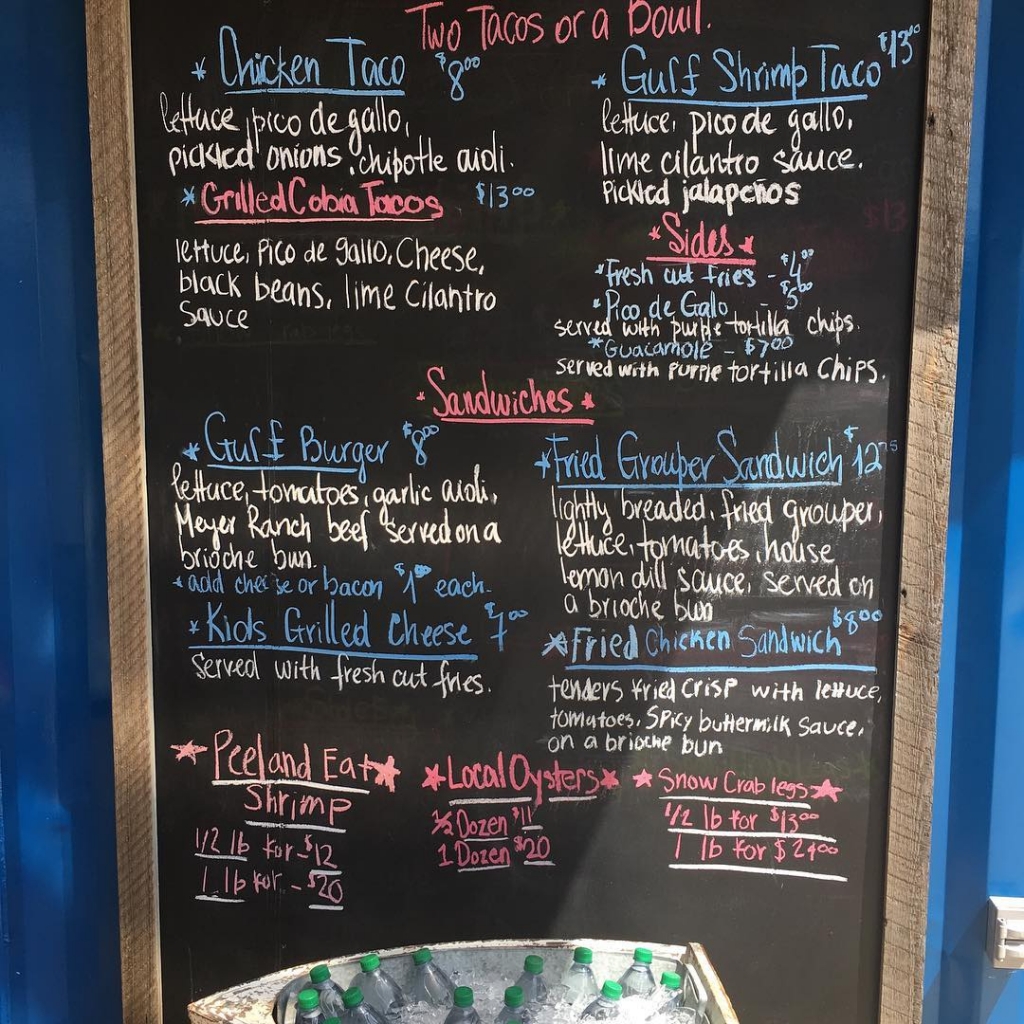 Two Tacos or a Bowl.
* Chicken Taco $8.00
lettuce, pico de gallo,
pickled onions, chipotle aioli.
* Grilled Cobia Tacos $13.00
lettuce, Pico de gallo, Cheese,
black beans, lime Cilantro
Sauce
* Gulf Shrimp Taco $13.00
lettuce, pico de gallo,
lime cilantro sauce.
Pickled jalapeños
* Sides *
* Fresh cut fries - $4.00
* Pico de Gallo - $5.00
served with purple tortilla chips.
* Guacamole - $7.00
served with purple tortilla Chips.
* Sandwiches *
* Gulf Burger $8.00
lettuce, tomatoes, garlic aioli,
Meyer Ranch beef served on a
brioche bun.
* add cheese or bacon $1.00 each.
* Kids Grilled Cheese $7.00
Served with fresh cut fries.
* Fried Grouper Sandwich $12.75
lightly breaded, fried grouper,
lettuce, tomatoes, house
lemon dill sauce, served on
a brioche bun
* Fried Chicken Sandwich $8.00
tenders fried crisp with lettuce,
tomatoes, Spicy buttermilk Sauce,
on a brioche bun
* Peel and Eat *
Shrimp
1/2 lb for - $12
1 lb for - $20
* Local Oysters *
1/2 Dozen $11
1 Dozen $20
* Snow Crab legs *
1/2 lb for $13.00
1 lb for $24.00